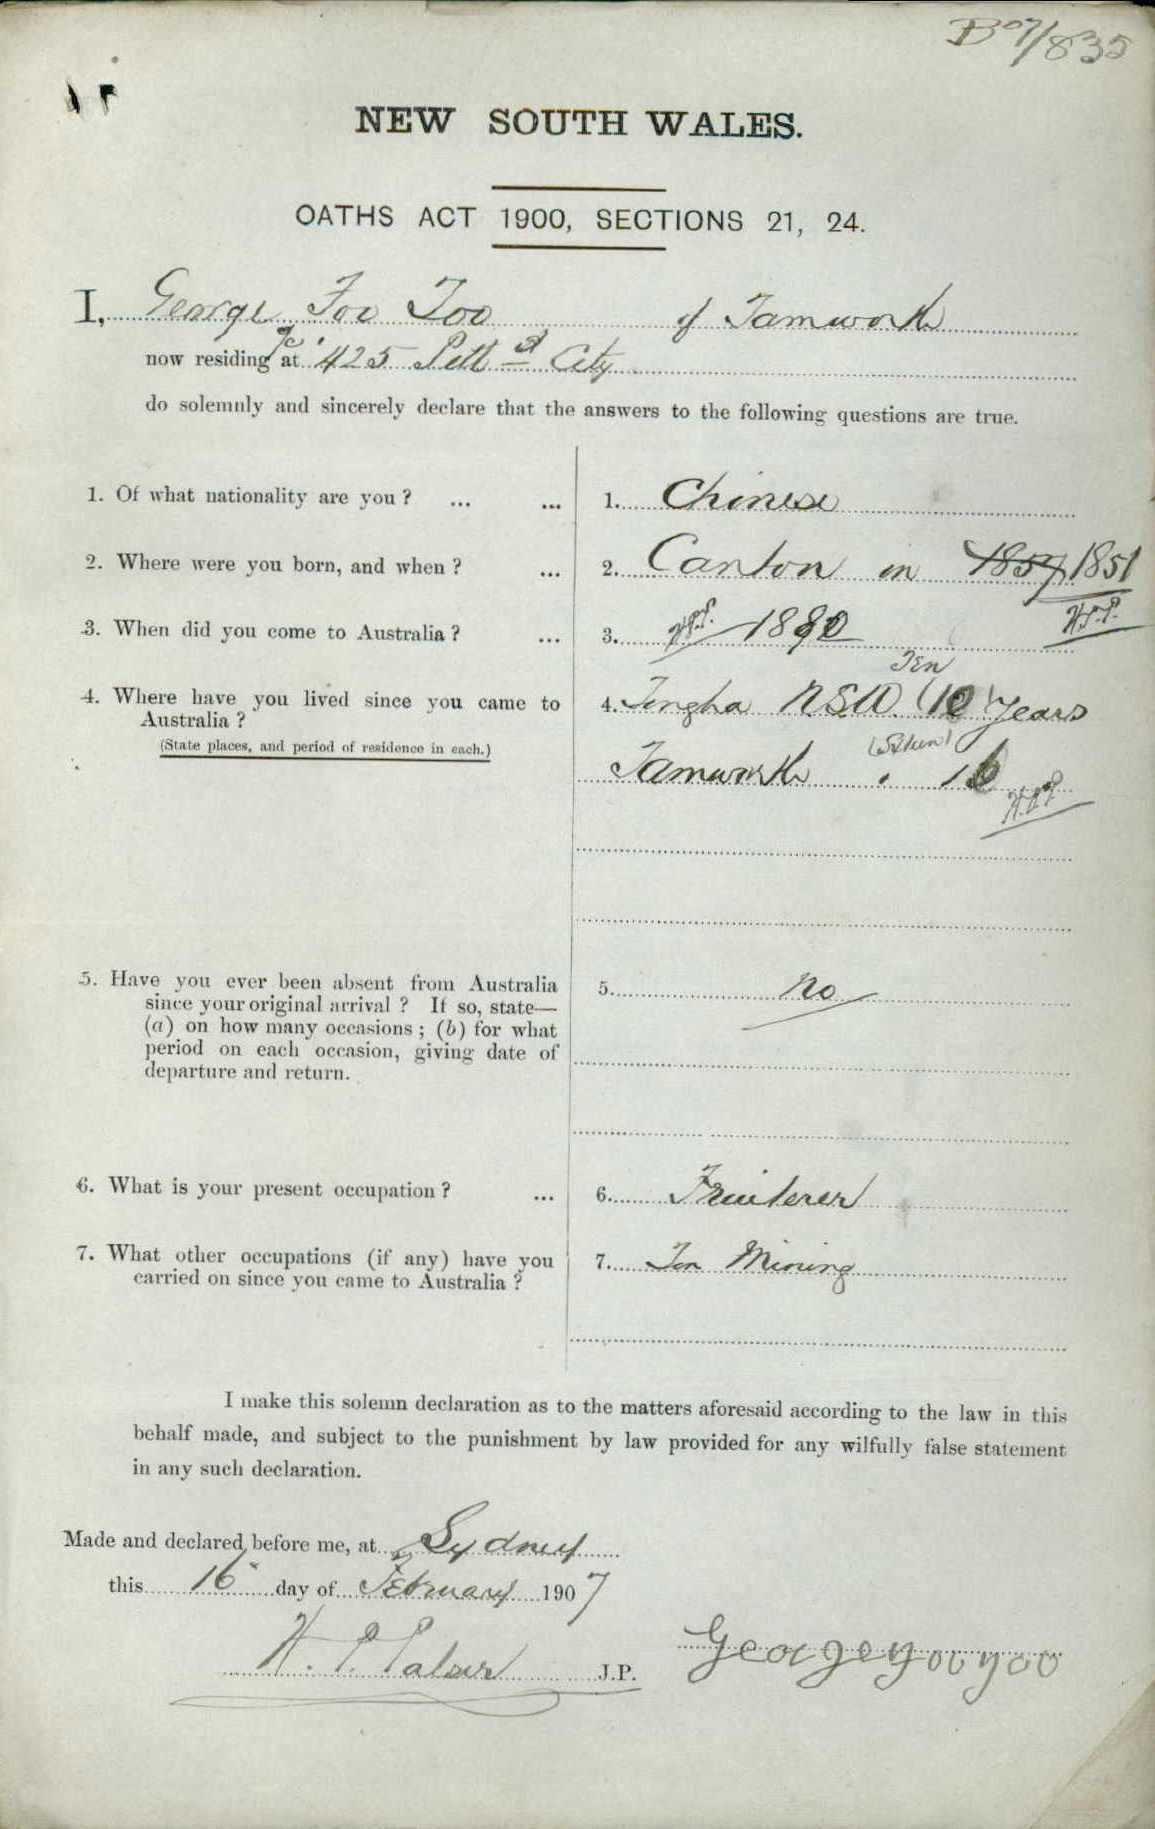 B07/835
NEW SOUTH WALES.
OATHS ACT 1900, SECTIONS 21, 24.
I, George Foo Foo of Tamworth
now residing at 425 Pitt St City
do solemnly and sincerely declare that the answers to the following questions are true.
1. Of what nationality are you? ... ... 1. Chinese
2. Where were you born, and when? ... 2. Canton in 1857 1851
3. When did you come to Australia? ... 3. 1880
4. Where have you lived since you came to Australia?
(State places, and period of residence in each.)
4. Tingha NSW. (10 Ten) Years
Tamworth " 16
5. Have you ever been absent from Australia
since your original arrival? If so, state—
(a) on how many occasions; (b) for what
period on each occasion, giving date of
departure and return.
5. No
6. What is your present occupation? ... 6. Fruiterer
7. What other occupations (if any) have you
carried on since you came to Australia?
7. Tin Mining
I make this solemn declaration as to the matters aforesaid according to the law in this
behalf made, and subject to the punishment by law provided for any wilfully false statement
in any such declaration.
Made and declared before me, at Sydney
this 16 day of February 1907
J.P. George yoo yoo